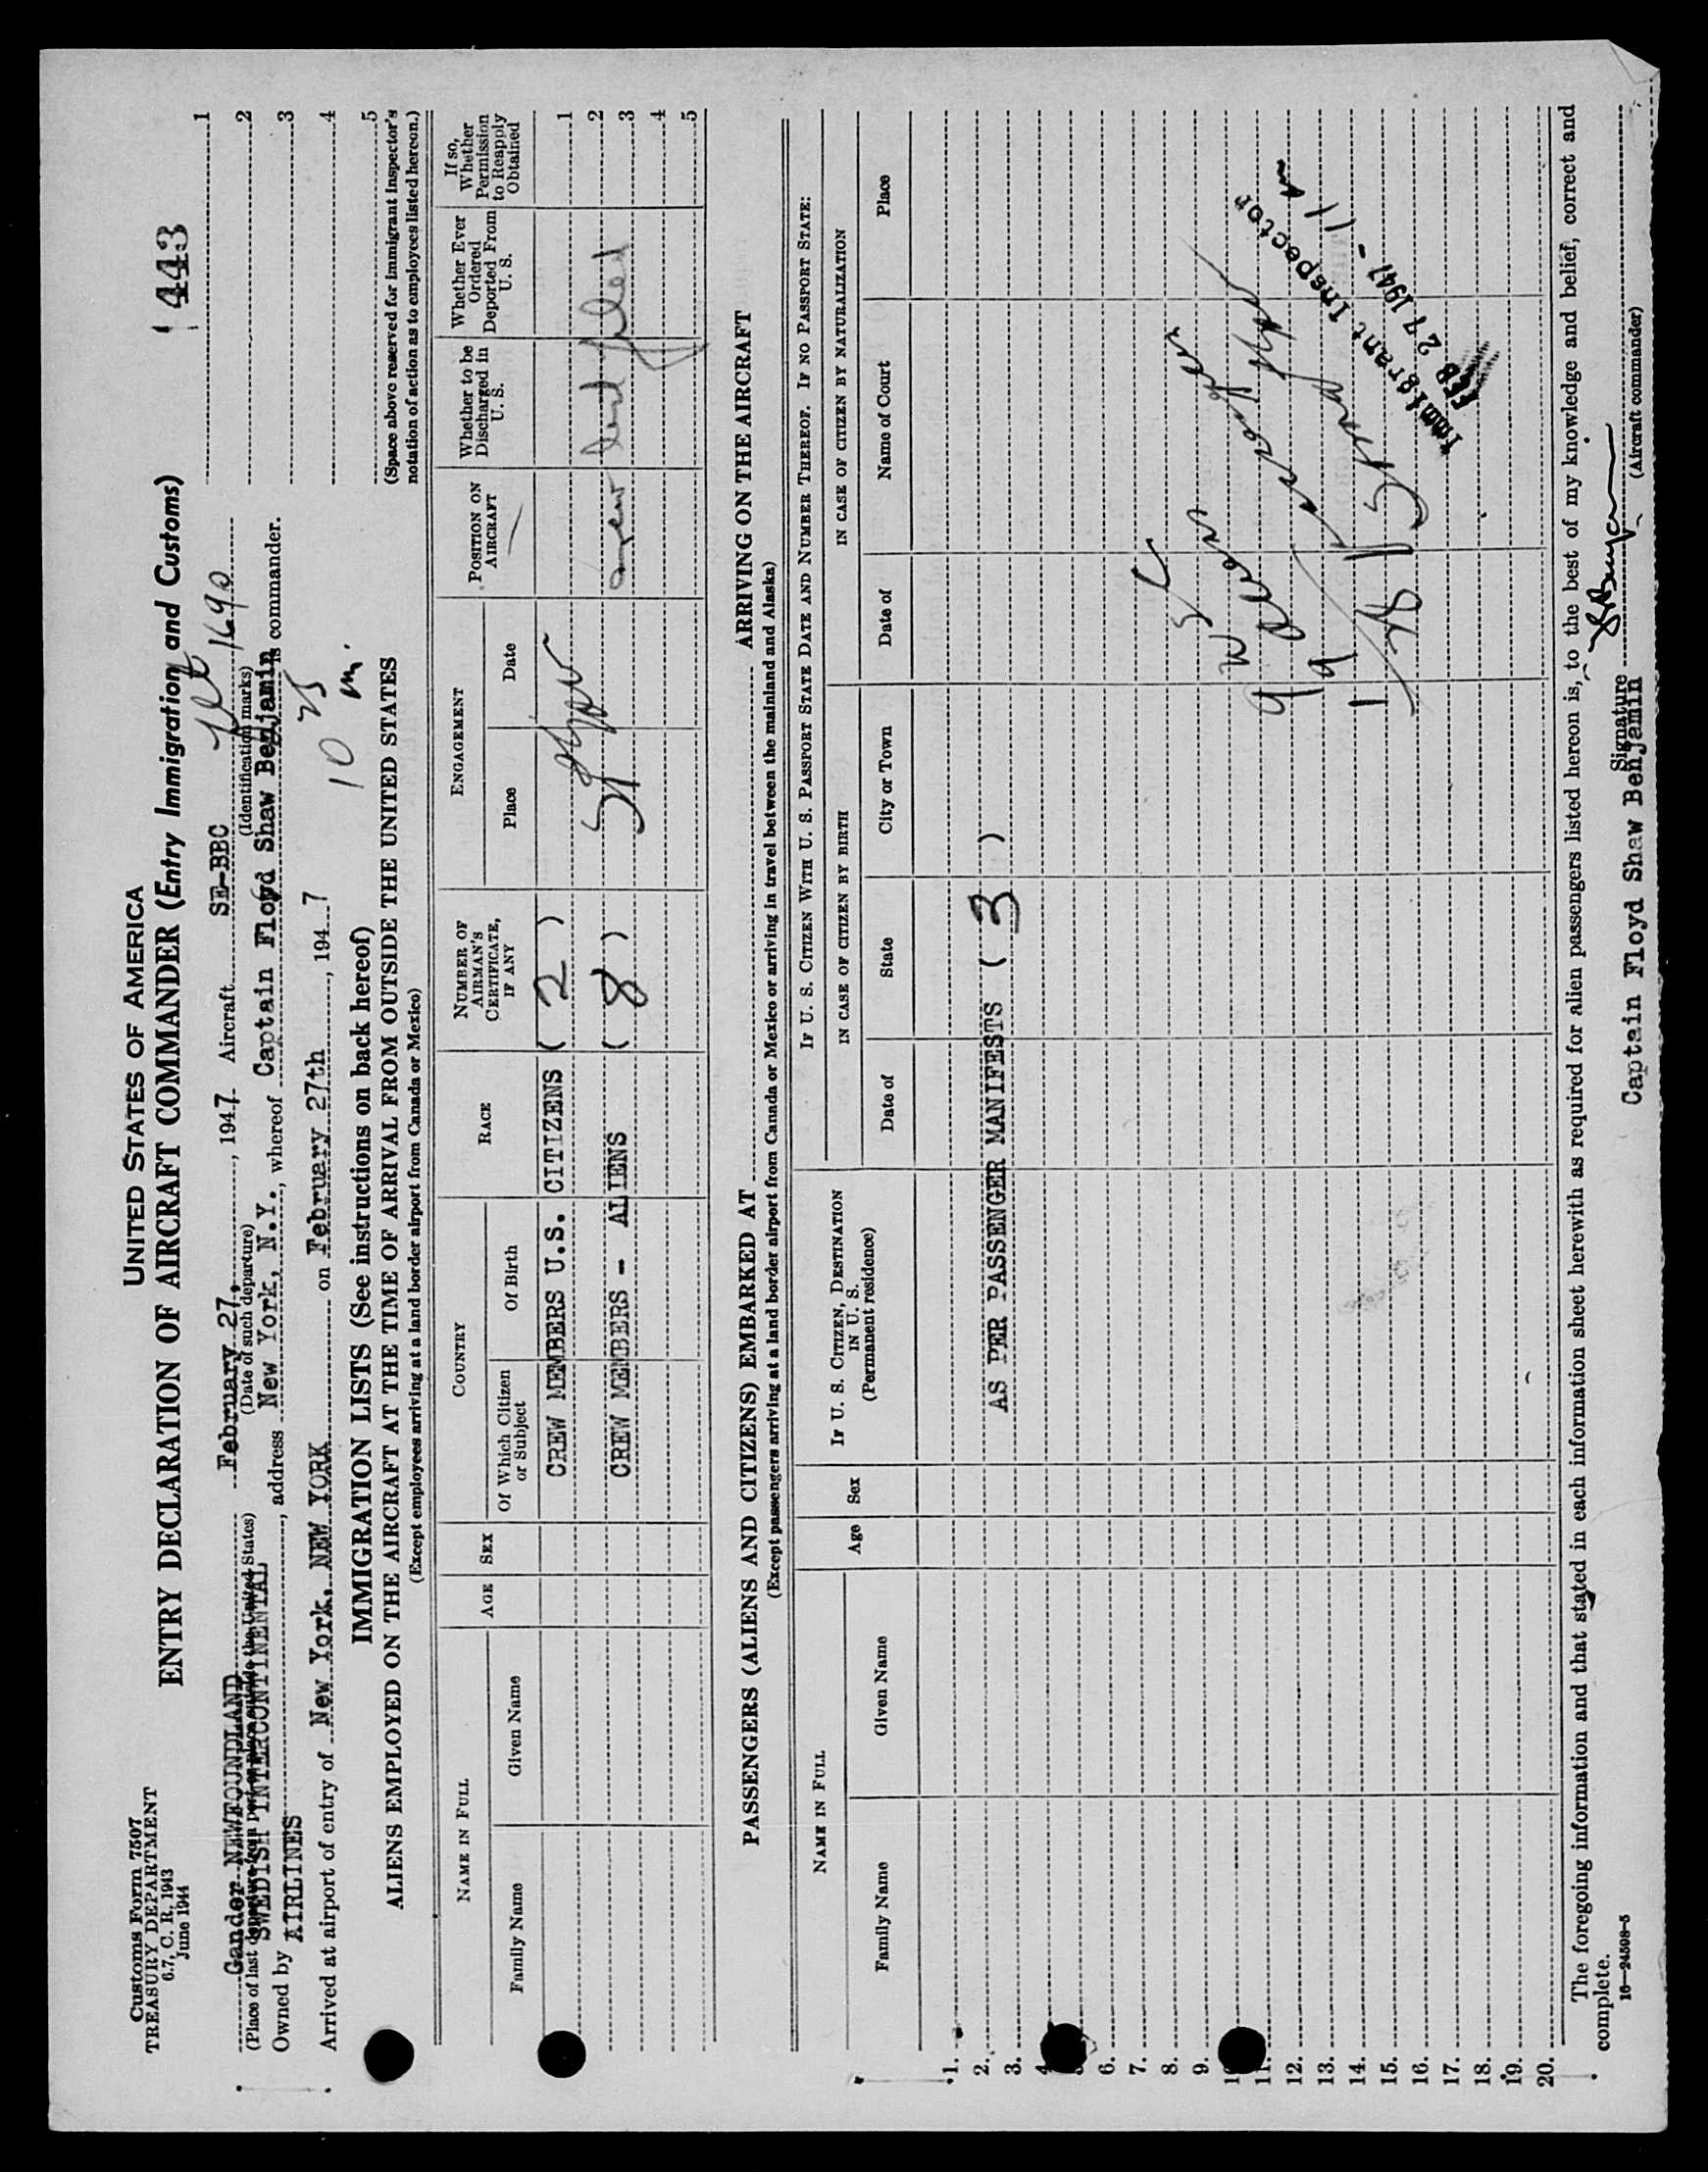 Customs Form 7507
TREASURY DEPARTMENT
6.7, C. R. 1943
June 1944
UNITED STATES OF AMERICA
ENTRY DECLARATION OF AIRCRAFT COMMANDER (Entry Immigration and Customs)
1443
Gander NEWFOUNDLAND February 27, 1947 Aircraft SE-BBC
1690
(Place of last departure from port or place outside the United States) (Date of such departure) (Identification marks)
Owned by SWEDISH INTERCONTINENTAL AIRLINES, address New York, N.Y., whereof Captain Floyd Shaw Benjamin is commander.
Arrived at airport of entry of New York, NEW YORK on February 27th, 1947
10 25 m.
1
2
3
4
5
(Space above reserved for Immigrant Inspector's
notation of action as to employees listed hereon.)
IMMIGRATION LISTS (See instructions on back hereof)
ALIENS EMPLOYED ON THE AIRCRAFT AT THE TIME OF ARRIVAL FROM OUTSIDE THE UNITED STATES
(Except employees arriving at a land border airport from Canada or Mexico)
NAME IN FULL
Family Name Given Name
AGE
SEX
COUNTRY
Of Which Citizen or Subject Of Birth
RACE
NUMBER OF AIRMAN'S CERTIFICATE, IF ANY
ENGAGEMENT
Place Date
POSITION ON AIRCRAFT
Whether to be Discharged in U. S.
Whether Ever Ordered Deported From U. S.
If so, Whether Permission to Reapply Obtained
CREW MEMBERS U.S. CITIZENS ( 2 ) 1
2
CREW MEMBERS - ALIENS ( 8 ) 3
4
5
PASSENGERS (ALIENS AND CITIZENS) EMBARKED AT ARRIVING ON THE AIRCRAFT
(Except passengers arriving at a land border airport from Canada or Mexico or arriving in travel between the mainland and Alaska)
NAME IN FULL
Family Name Given Name
Age
Sex
IF U. S. CITIZEN, DESTINATION IN U. S. (Permanent residence)
IF U. S. CITIZEN WITH U. S. PASSPORT STATE DATE AND NUMBER THEREOF. IF NO PASSPORT STATE:
IN CASE OF CITIZEN BY BIRTH
Date of State City or Town
IN CASE OF CITIZEN BY NATURALIZATION
Date of Name of Court Place
1.
2. AS PER PASSENGER MANIFESTS ( 3 )
3.
4
6.
7.
8.
9.
10
11.
12.
13.
14.
15.
16.
17.
18.
19.
20.
Immigrant Inspector
FEB 27 1947
The foregoing information and that stated in each information sheet herewith as required for alien passengers listed hereon is, to the best of my knowledge and belief, correct and
complete.
16—24508-5
Signature
(Aircraft commander)
Captain Floyd Shaw Benjamin